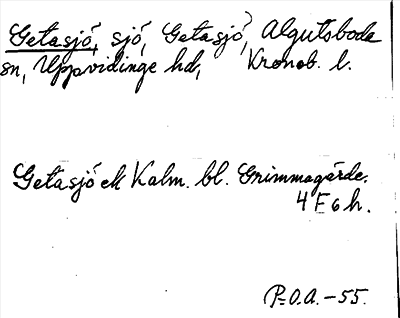 Getasjö, sjö, Getasjö, Algutsboda
sn, Uppvidinge hd, Kronob. l.
Getasjö ek Kalm. bl. Grimmagärde.
4 F 6 h.
P.O.A. -55.